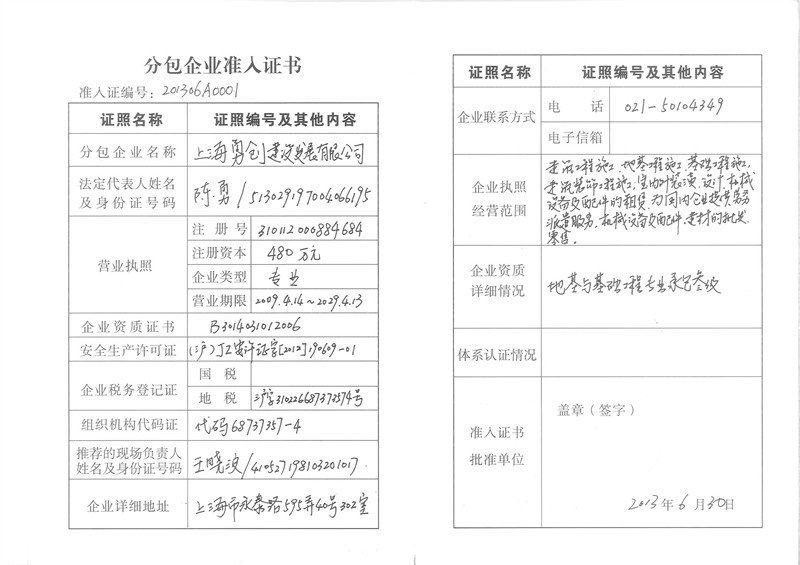 分包企业准入证书
准入证编号：201306A0001
证照名称 证照编号及其他内容
分包企业名称 上海勇创建设发展有限公司
法定代表人姓名
及身份证号码 陈勇/513029197004066195
营业执照
注册号 310112000884684
注册资本 480万元
企业类型 专业
营业期限 2009.4.14~2029.4.13
企业资质证书 B3014031012006
安全生产许可证 (沪)JZ安许证字[2012]190609-01
企业税务登记证
国税
地税 沪字310226687373574号
组织机构代码证 代码68737357-4
推荐的现场负责人
姓名及身份证号码 王晓波/410527198103201017
企业详细地址 上海市永泰路595弄40号302室
证照名称 证照编号及其他内容
企业联系方式
电话 021-50104349
电子信箱
企业执照
经营范围
建筑工程施工、地基工程施工、基础工程施工、
建筑装饰工程施工,室内外装潢、设计,机械
设备及配件的租赁,为国内企业提供劳务
派遣服务,机械设备及配件、建材的批发、
零售。
企业资质
详细情况 地基与基础工程专业承包叁级
体系认证情况
准入证书
批准单位
盖章（签字）
2013年6月30日